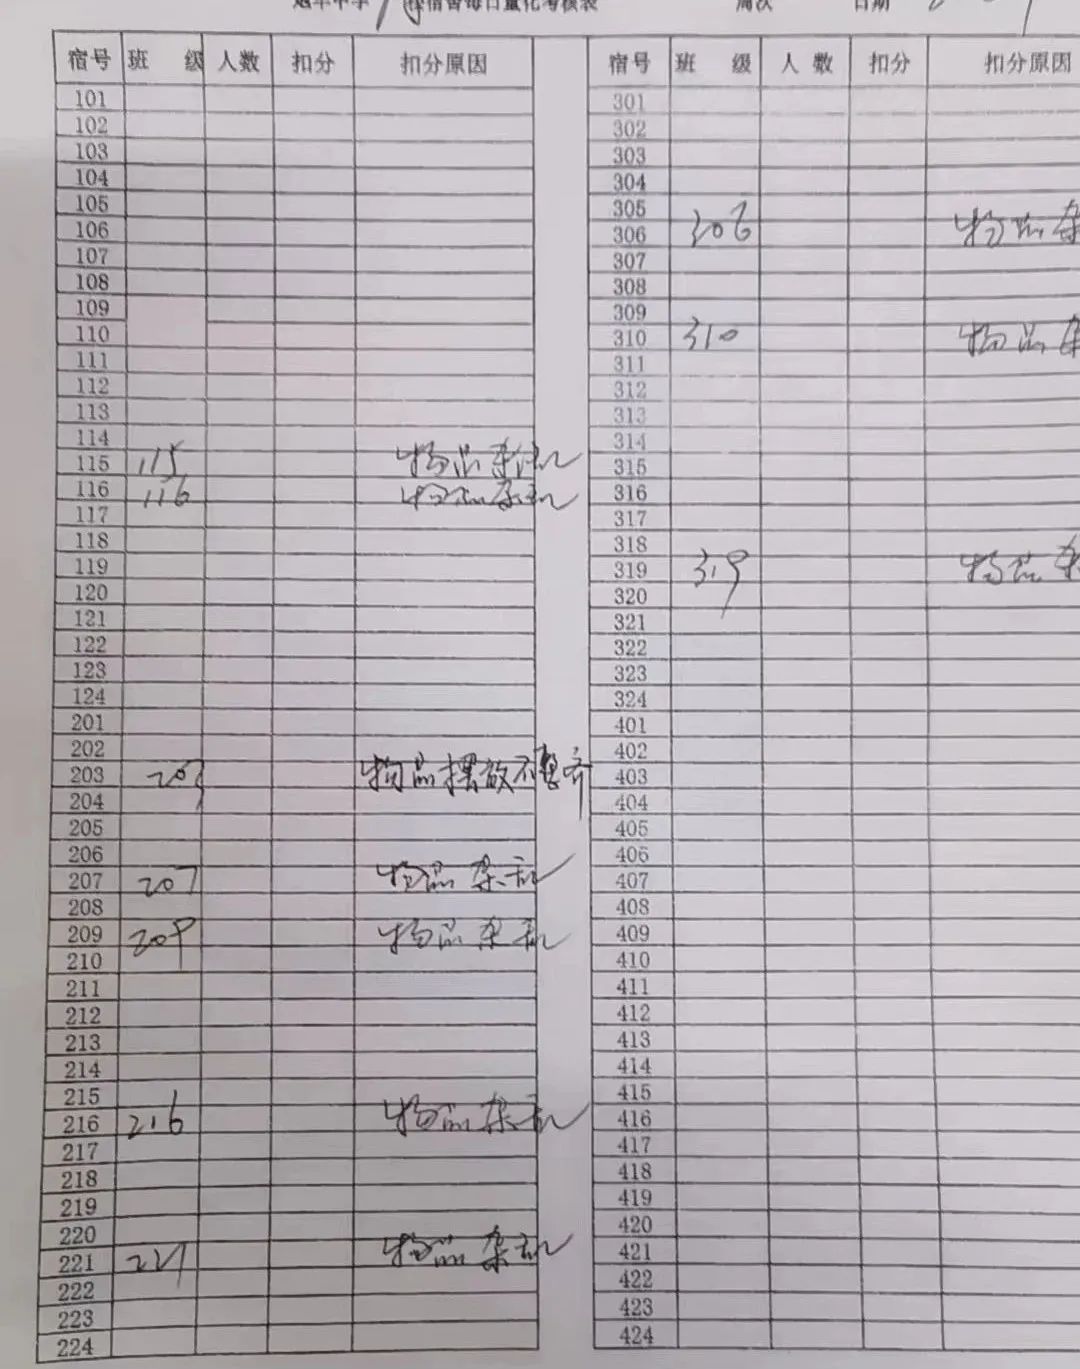 宿舍每日量化考核表 周次 日期
宿号 班 级 人数 扣分 扣分原因
101
102
103
104
105
106
107
108
109
110
111
112
113
114
115 115 物品杂乱
116 116 物品杂乱
117
118
119
120
121
122
123
124
201
202
203 203 物品摆放不整齐
204
205
206
207 207 物品杂乱
208
209 209 物品杂乱
210
211
212
213
214
215
216 216 物品杂乱
217
218
219
220
221 221 物品杂乱
222
223
224
宿号 班 级 人 数 扣分 扣分原因
301
302
303
304
305
306 306 物品杂
307
308
309
310 310 物品杂
311
312
313
314
315
316
317
318
319 319 物品杂
320
321
322
323
324
401
402
403
404
405
406
407
408
409
410
411
412
413
414
415
416
417
418
419
420
421
422
423
424